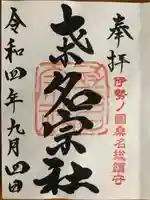 奉拝
伊勢ノ國桑名総鎮守
桒名宗社
令和四年九月四日